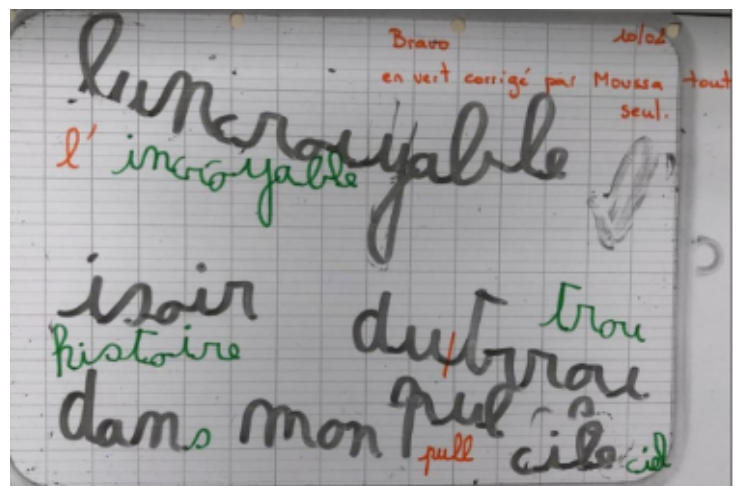 Bravo 10/02
en vert corrigé par Moussa tout
seul.
luncrouyable
l' incroyable
isoir dutrrou trou
histoire
dans mon pul cile ciel
pull